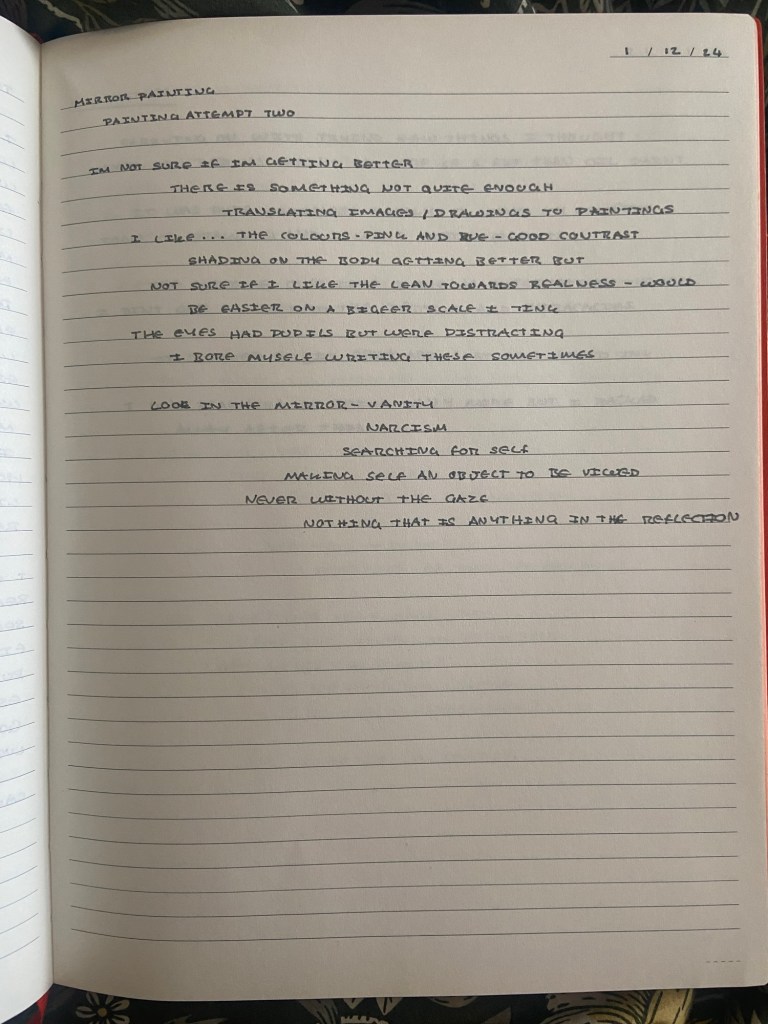 1 / 12 / 24
MIRROR PAINTING
PAINTING ATTEMPT TWO
IM NOT SURE IF IM GETTING BETTER
THERE IS SOMETHING NOT QUITE ENOUGH
TRANSLATING IMAGES / DRAWINGS TO PAINTINGS
I LIKE... THE COLOURS - PINK AND BUE - GOOD CONTRAST
SHADING ON THE BODY GETTING BETTER BUT
NOT SURE IF I LIKE THE LEAN TOWARDS REALNESS - WOULD
BE EASIER ON A BIGEER SCALE I TINK
THE EYES HAD PUPILS BUT WERE DISTRACTING
I BORE MYSELF WRITING THESE SOMETIMES
LOOK IN THE MIRROR - VANITY
NARCISM
SEARCHING FOR SELF
MAKING SELF AN OBJECT TO BE VIEWED
NEVER WITHOUT THE GAZE
NOTHING THAT IS ANYTHING IN THE REFLECTION